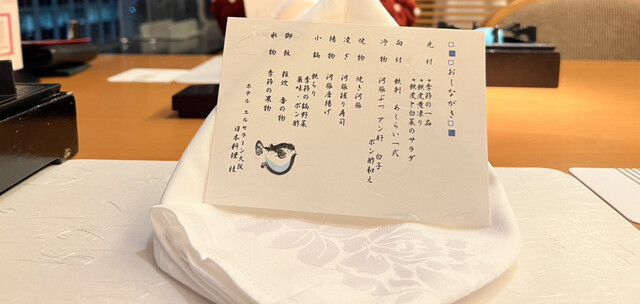 おしながき
先付
*季節の一品
*鉄皮煮凍り
*鉄皮と白菜のサラダ
向付 鉄刺 あしらい一式
冷物 河豚ぶつ アン肝 白子
ポン酢和え
焼物 焼き河豚
凌ぎ 河豚握り寿司
揚物 河豚唐揚げ
小鍋 鉄ちり
季節の鍋野菜
薬味・ポン酢
御飯 雑炊 香の物
水物 季節の果物
ホテル エルセラーン大阪
日本料理 桂